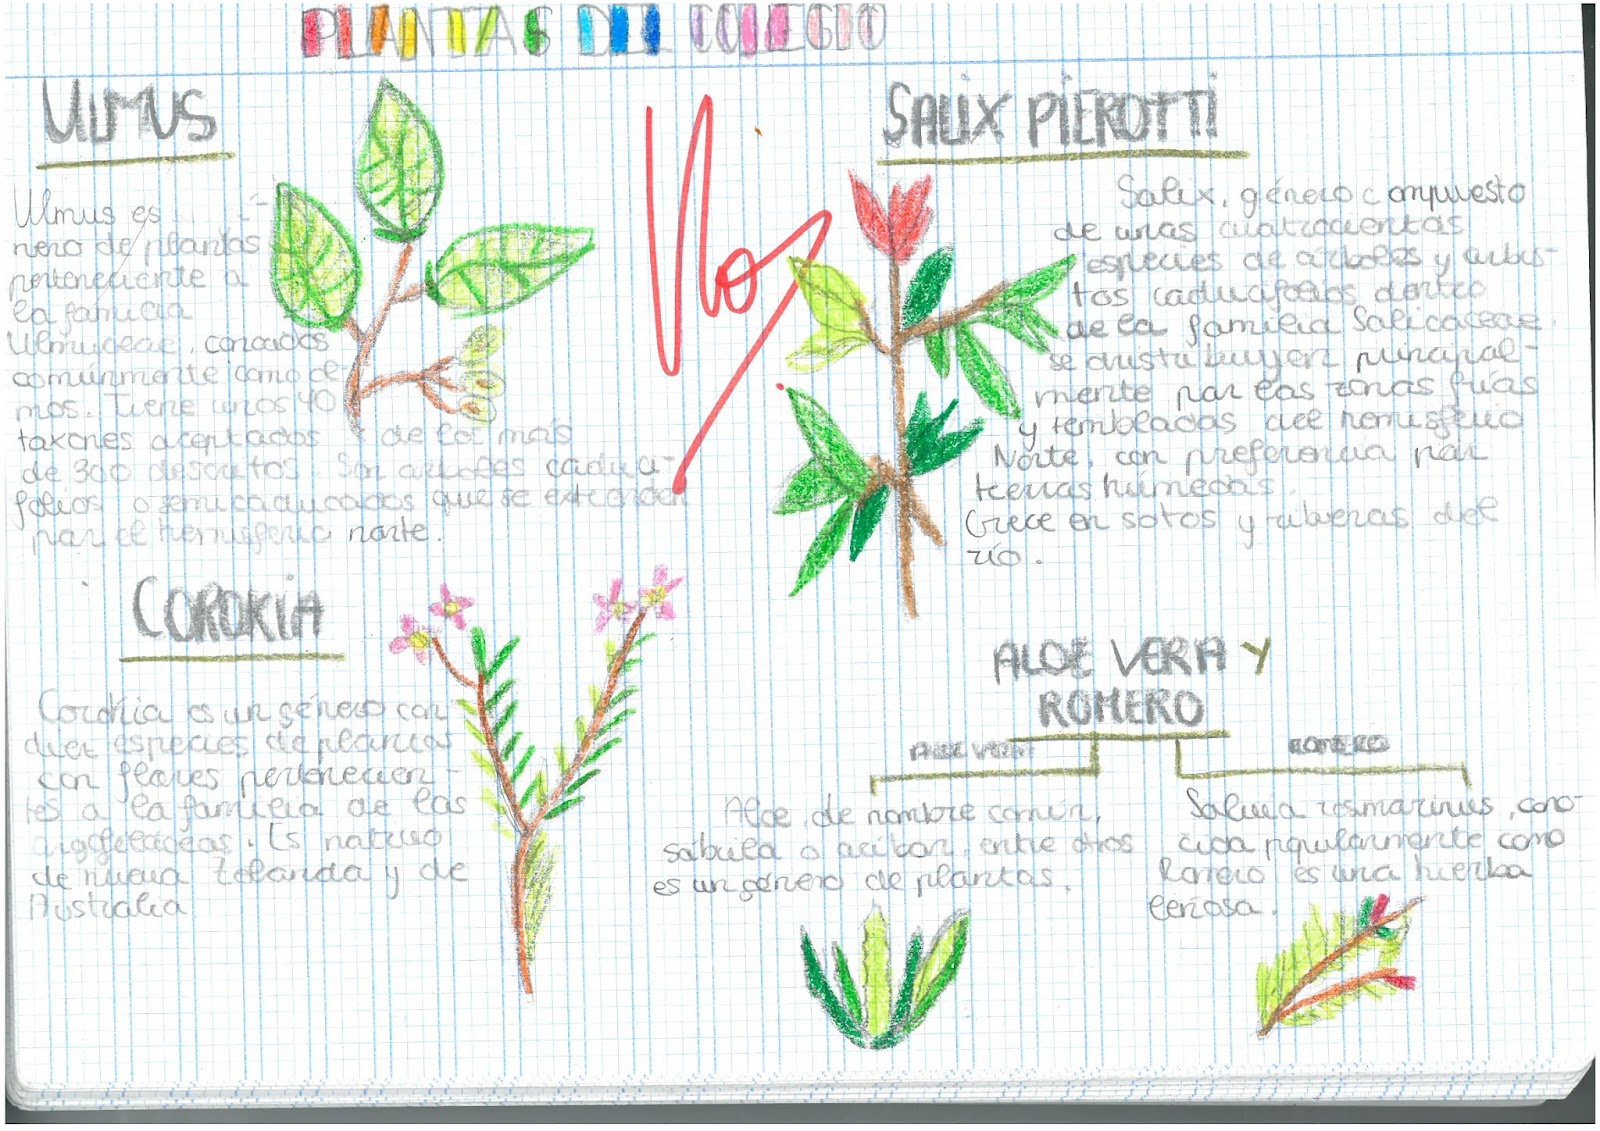 PLANTAS DEL COLEGIO
ULMUS
Ulmus es
nero de plantas
perteneciente a
la familia
Ulmaceae, conocidos
comúnmente como ol-
mos. Tiene unos 40
taxones aceptados de los más
de 300 descritos. Son arboles caduci-
folios o semicaducados que se extienden
por el Hemisferio norte.
SALIX PIEROTTI
Salix, género compuesto
de unas cuatrocientas
especies de árboles y arbus-
tos caducifolios dentro
de la familia Salicaceae.
se distribuyen principal-
mente por las zonas frías
y tembladas del hemisferio
Norte, con preferencia por
tierras húmedas.
Crece en sotos y riberas del
río.
COROKIA
Corokia es un género con
diez especies de plantas
con flores pertenecien-
tes a la familia de las
Es nativo
de nueva Zelanda y de
Australia
ALOE VERA Y
ROMERO
ALOE VERA
ROMERO
Aloe, de nombre común,
sabila o acíbar, entre otros
es un género de plantas.
Salvia rosmarinus, cono-
cida popularmente como
Romero es una hierba
leñosa.